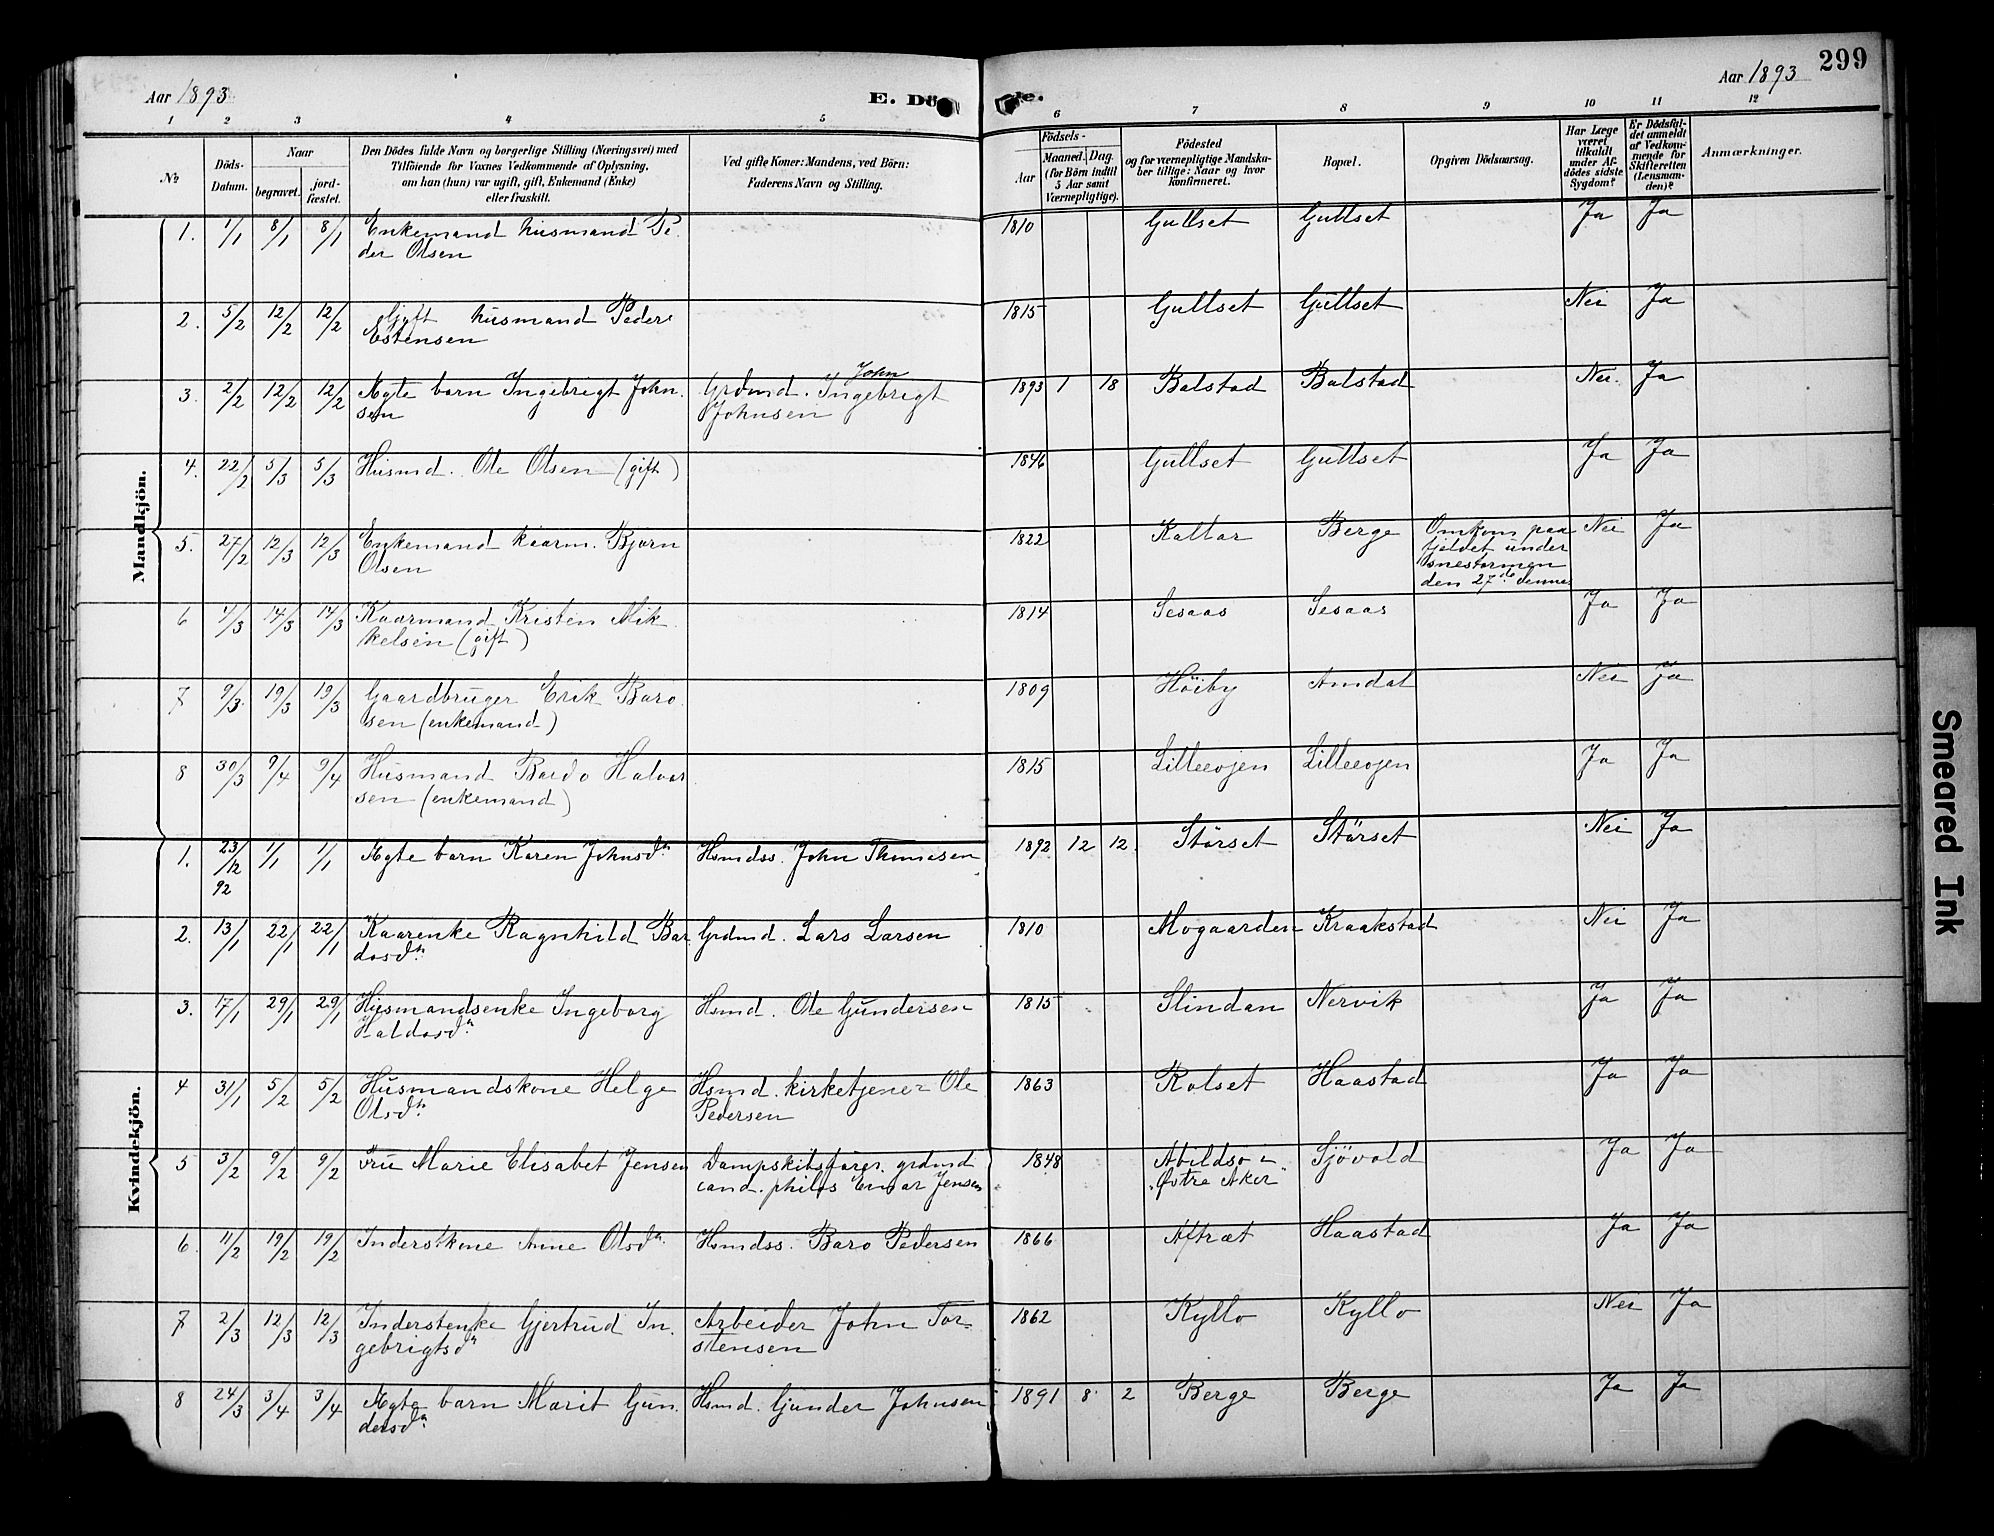 Aar 1893
E. Dö
de.
Aar 1893
299
1 2 3 4 5 6 7 8 9 10 11 12
No
Döds-Datum.
Naar
begravet.
jord-fæstet.
Den Dödes fulde Navn og borgerlige Stilling (Næringsvei) med
Tilföiende for Voxnes Vedkommende af Oplysning,
om han (hun) var ugift, gift, Enkemand (Enke)
eller fraskilt.
Ved gifte Koner: Mandens, ved Börn:
Faderens Navn og Stilling.
Födsels-
Aar
Maaned.
Dag.
(for Börn indtil
5 Aar samt
Værnepligtige).
Födested
og for værnepligtige Mandska-
ber tillige: Naar og hvor
konfirmeret.
Bopæl.
Opgiven Dödsaarsag.
Har Læge
været
tilkaldt
under Af-
dödes sidste
Sygdom?
Er Dödsfal-
det anmeldt
af Vedkom-
mende for
Skifteretten
(Lensman-
den)?
Anmærkninger.
Mandkjön.
1. 1/1 8/1 8/1 Enkemand husmand Pe- 1810 Gullset Gullset Ja Ja
der Olsen
2. 5/2 12/2 12/2 Gift husmand Peder 1815 Gullset Gullset Nei Ja
Estensen
John
3. 2/2 12/2 12/2 Ægte barn Ingebrigt John- Grdmd. Ingebrigt 1893 1 18 Balstad Balstad Nei. Ja
sen Johnsen
4. 22/2 5/3 5/3 Husmd. Ole Olsen (gift) 1846 Gullset Gullset Ja Ja
5. 27/2 12/3 12/3 Enkemand kaarm. Bjørn 1822 Kaltar Berge Omkom paa Nei Ja
Olsen fjeldet under
snestormen
den 27de dennes
6 4/3 14/3 14/3 Kaarmand Kristen Mik- 1814 Sesaas Sesaas Ja Ja
kelsen (gift)
7 9/3 19/3 19/3 Gaardbruger Erik Baro- 1809 Höiby Amdal Nei Ja
sen (enkemand)
8 30/3 9/4 9/4 Husmand Bardo Halvor- 1815 Lilleevjen Lilleevjen Ja Ja
sen (enkemand)
Kvindekjön.
1. 23/12 92 1/1 1/1 Ægte barn Karen Johnsdr Hsmdss. John Thomesen 1892 12 12. Størset Størset Nei Ja
2. 13/1 22/1 22/1 Kaarenke Ragnhild Bar- Grdmd. Lars Larsen 1810 Mogaarden Kraakstad Nei Ja
dosdr.
3. 17/1 29/1 29/1 Husmandsenke Ingeborg Hsmd. Ole Gundersen 1815 Slindan Nervik Ja Ja
Haldosdr.
4 31/1 5/2 5/2 Husmandskone Helge Hsmd. kirketjener Ole 1863 Rolset Haastad Ja Ja
Olsdr. Pedersen
5 3/2 9/2 9/2 Fru Marie Elisabet Jensen Dampskibsfører. grdmd 1848 Abildsø i Sjøvold Ja Ja
cand. philos Einar Jensen Østre Aker
6. 11/2 19/2 19/2 Inderstkone Anne Olsdr. Hsmdss. Baro Pedersen 1866 Aftræt Haastad Ja Ja
7 2/3 12/3 12/3 Inderstenke Gjertrud In- Arbeider John Tor- 1862 Kyllo Kyllo Nei Ja
gebrigtsdr stensen
8 24/3 3/4 3/4 Ægte barn Marit Gun- Hsmd. Gunder Johnsen 1891 8 2 Berge Berge Ja Ja
dersdr.
Smeared Ink